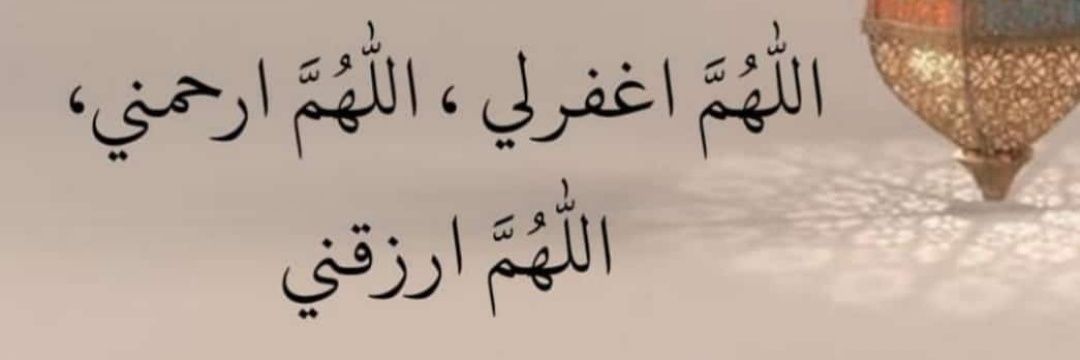 اللّٰهُمَّ اغفرلي ، اللّٰهُمَّ ارحمني،
اللّٰهُمَّ ارزقني